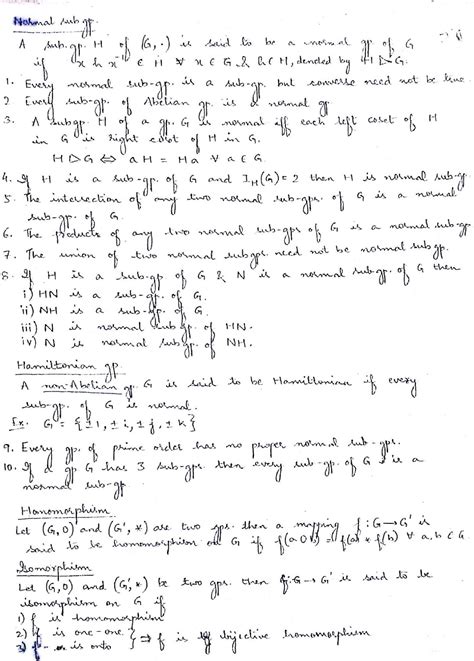 Normal sub gp.
A sub.gp. H of (G, ·) is said to be a normal gp. of G
if x h x⁻¹ ∈ H ∀ x ∈ G & h ∈ H, denoted by H ▷ G.
1. Every normal sub-gp. is a sub-gp. but converse need not be true.
2 Every sub-gp. of Abelian gp. is a normal gp
3. A subgp. H of a gp. G is normal iff each left coset of H
in G is right coset of H in G.
H ▷ G ⇔ aH = Ha ∀ a ∈ G.
4. If H is a sub-gp. of G and I_H(G) = 2 then H is normal sub-gp.
5. The intersection of any two normal sub-gps. of G is a normal
sub-gp. of G.
6. The products of any two normal sub-gps of G is a normal sub-gp
7. The union of two normal subgps. need not be normal subgp.
8. If H is a sub-gp of G & N is a normal sub-gp. of G then
i) HN is a sub-gp. of G.
ii) NH is a sub-gp. of G.
iii) N is normal subgp. of HN.
iv) N is normal subgp. of NH.
Hamiltonian gp.
A non-Abelian gp. G is said to be Hamiltonian if every
sub-gp. of G is normal.
Ex. G = {±1, ±i, ±j, ±k}
9. Every gp. of prime order has no proper normal sub-gps.
10. If a gp G has 3 sub-gps. then every sub-gp. of G is a
normal sub-gp
Homomorphism
Let (G, O) and (G', *) are two gps. then a mapping f: G → G' is
said to be homomorphism on G if f(a O b) = f(a) * f(b) ∀ a, b ∈ G.
Isomorphism
Let (G, O) and (G', *) be two gps. then f: G → G' is said to be
isomorphism on G if
1) f is homomorphism
2) f is one-one } ⇒ f is bijective homomorphism
3) f is onto